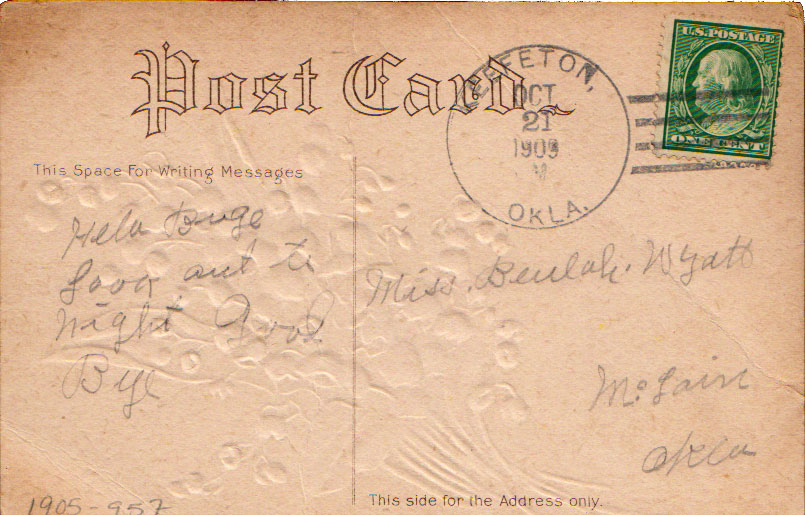 Post Card
KEEFETON,
OCT
21
1909
OKLA.
U.S. POSTAGE
ONE CENT
This Space For Writing Messages
Helo
Look out to
Night Good
Bye
Miss. Beulah. Wyatt
McLain
Okla
1905-957
This side for the Address only.